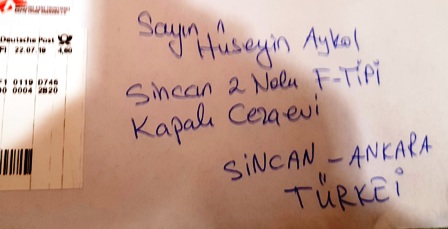 Deutsche Post
FI 22.07.19 4,60
0119 0746
0004 2B20
Sayın Hüseyin Aykol
Sincan 2 Nolu F-TİPİ
Kapalı Cezaevi
SİNCAN - ANKARA
TÜRKEİ